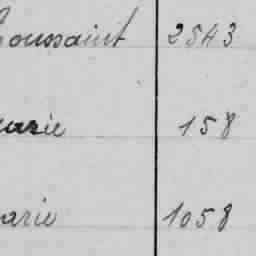 Toussaint 2543
arie 158
arie 1058